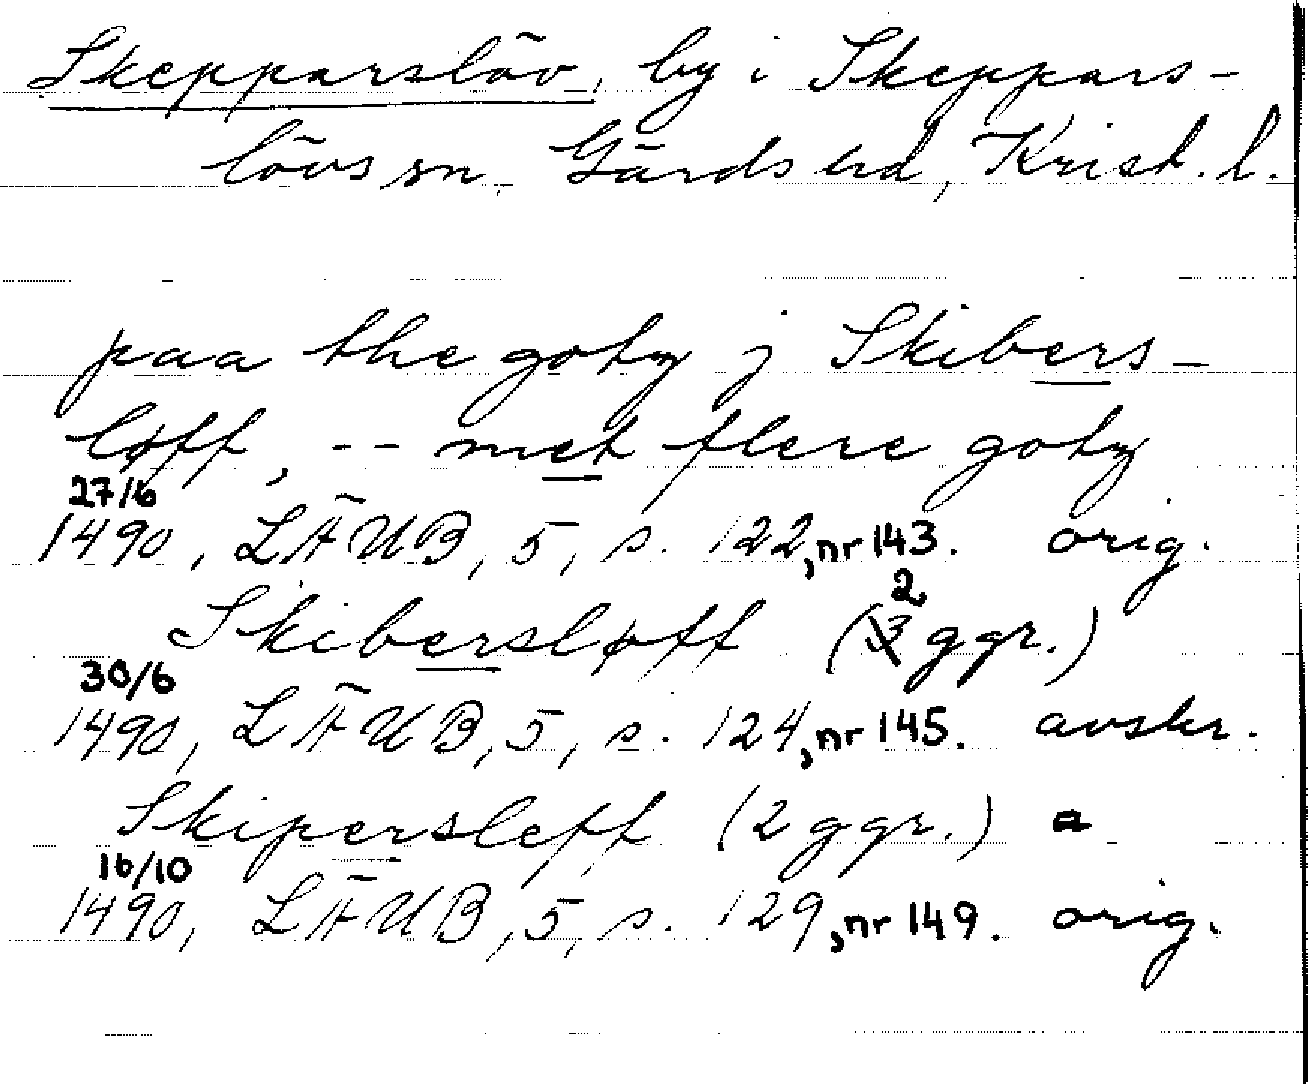 Skepparslöv, by i Skeppars-
lövs sn, Gärds hd, Krist. l.
paa the gotz j Skibers-
løff, -- met flere gotz
27/6
1490, LÄUB, 5, s. 122, nr 143. orig.
Skibersløff (2 ggr.)
30/6
1490, LÄUB, 5, s. 124, nr 145. avskr.
Skipersleff (2 ggr.) a
16/10
1490, LÄUB, 5, s. 129, nr 149. orig.